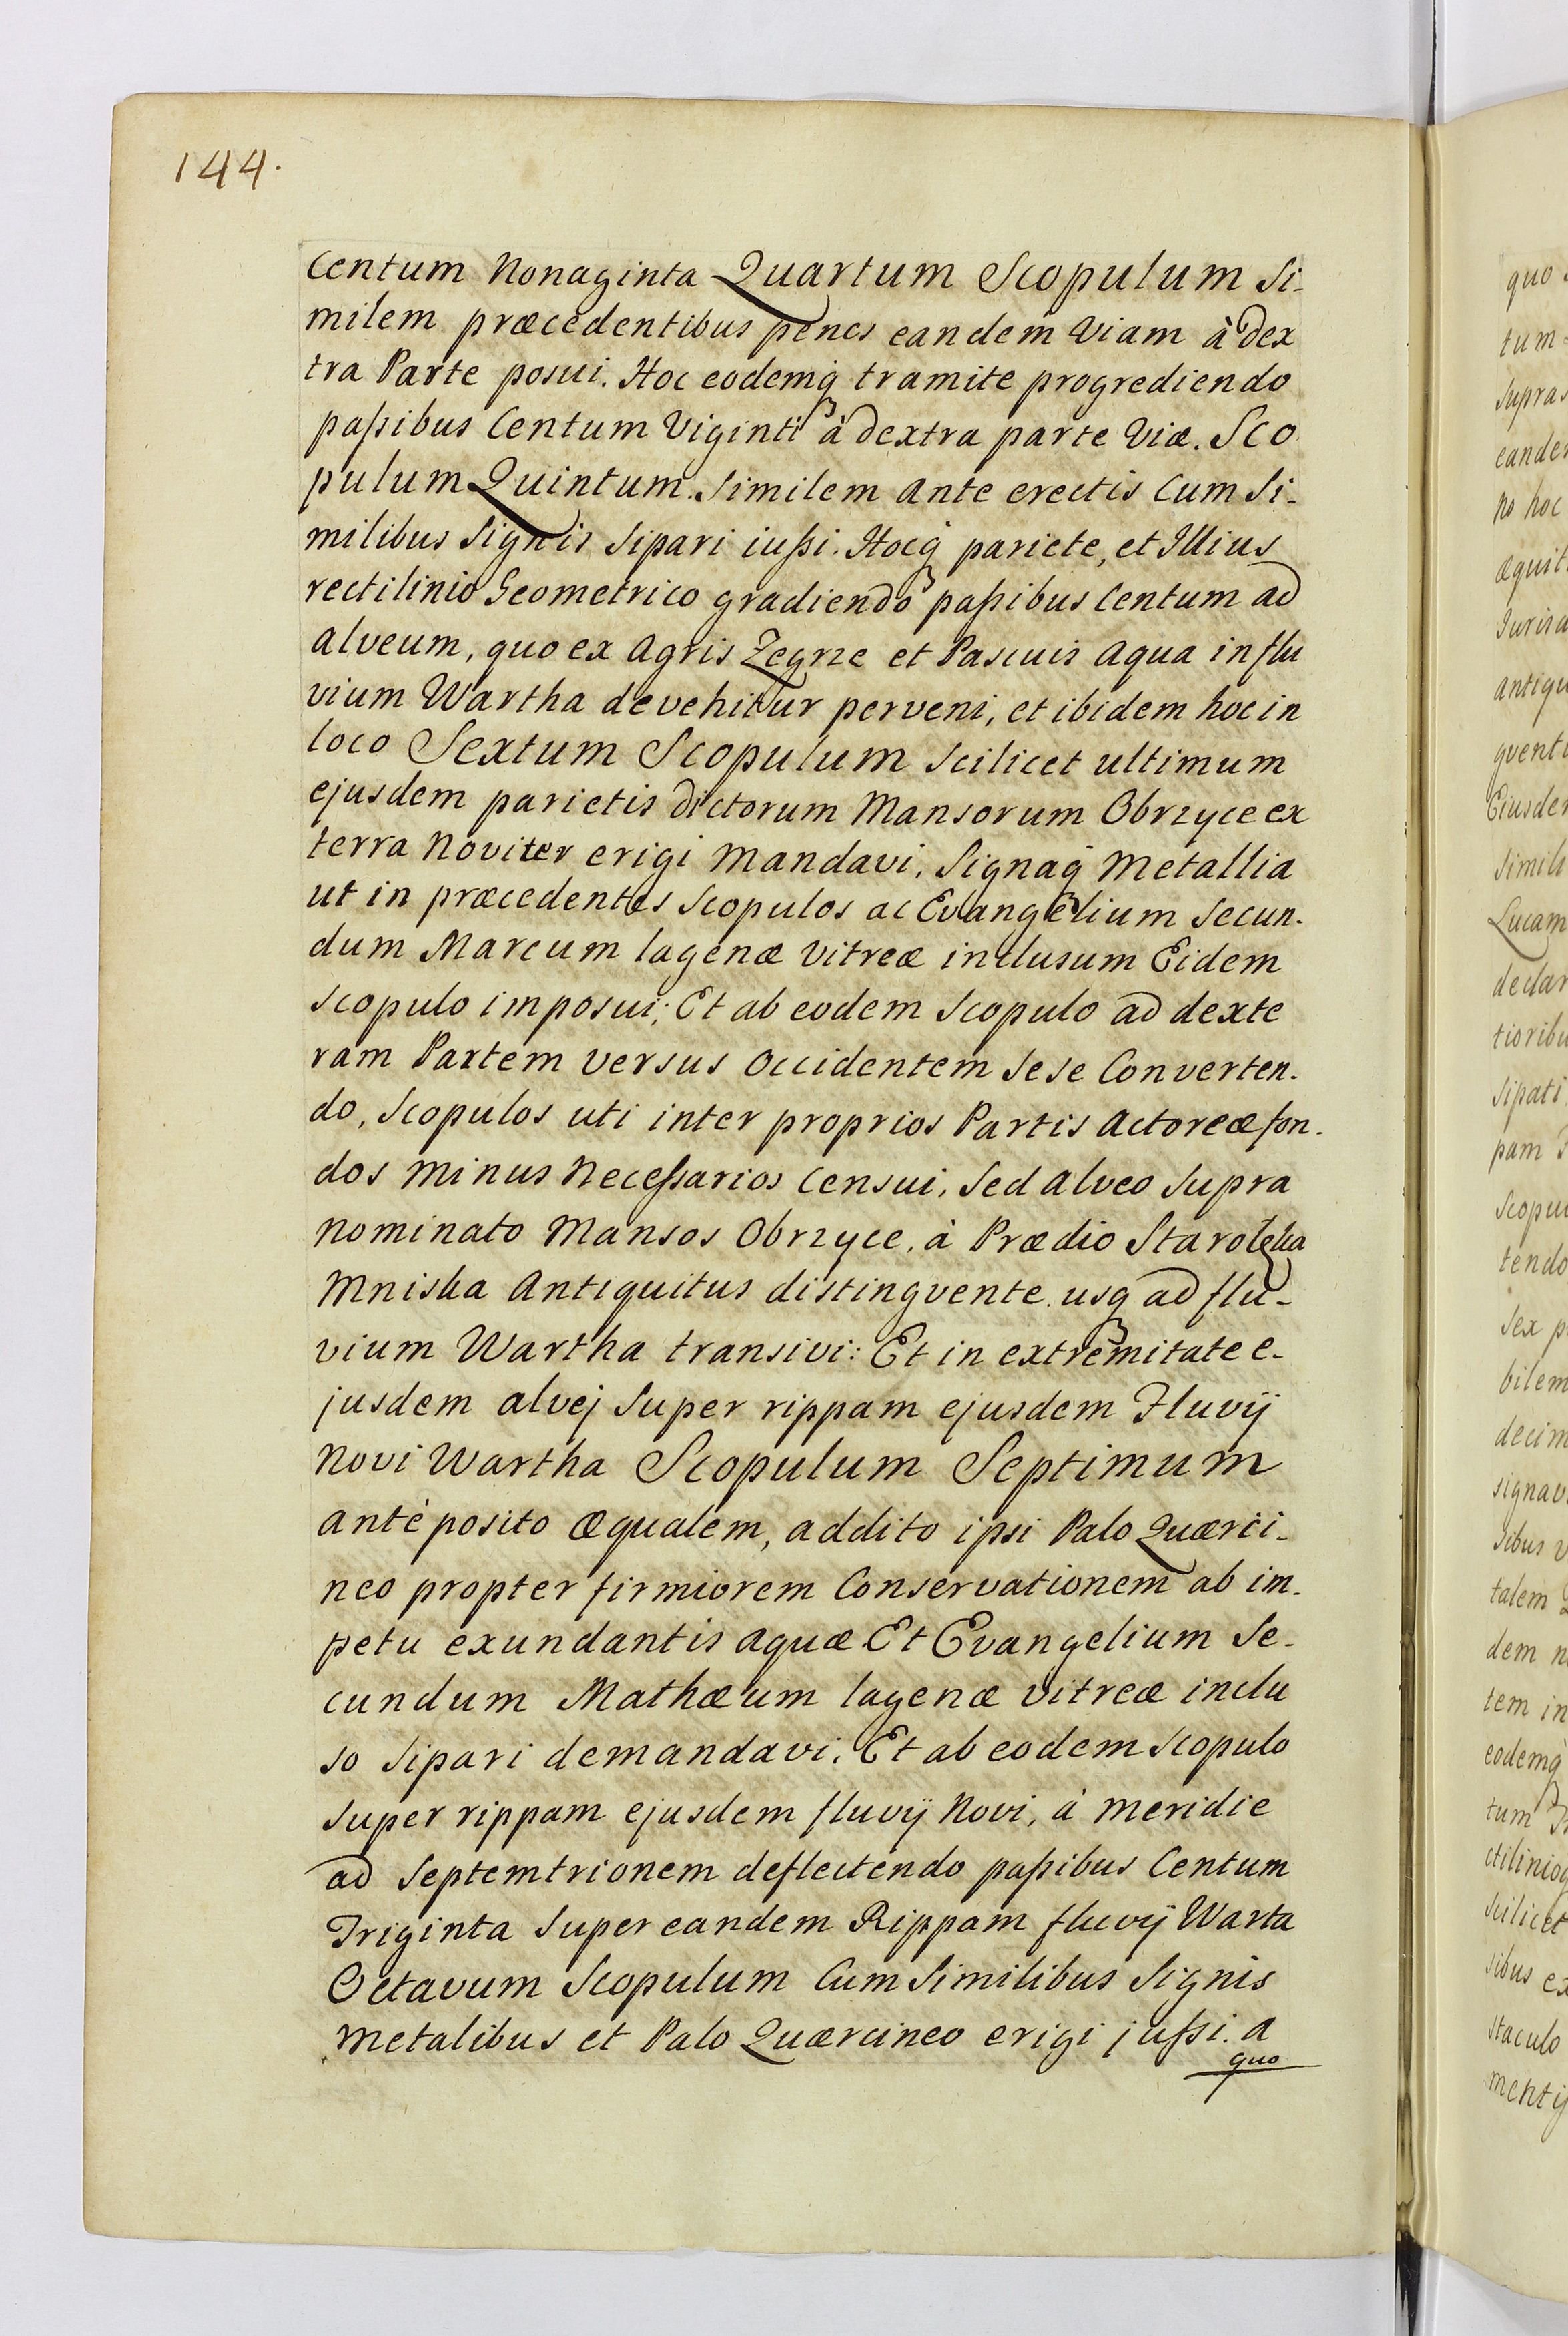 144.
Centum Nonaginta Quartum Scopulum Si-
milem præcedentibus penes eandem Viam à dex
tra Parte posui. Hoc eodemq́ tramite progrediendo
paßibus Centum Viginti à dextra parte Viæ. Sco
pulum Quintum. Similem Ante erectis Cum Si-
milibus Signis Sipari iußi. Hocq́ pariete, et Illius
rectilinio Geometrico gradiendo paßibus Centum ad
Alveum, quo ex Agris Zegrze et Pascuis Aqua in flu
vium Wartha devehitur perveni, et ibidem hoc in
loco Sextum Scopulum Scilicet ultimum
ejusdem parietis dictorum Mansorum Obrzyce ex
terra Noviter erigi Mandavi, Signaq́ Metallia
ut in præcedentes Scopulos ac Evangelium Secun-
dum Marcum lagenæ Vitreæ inclusum Eidem
Scopulo imposui; Et ab eodem Scopulo ad dexte
ram Partem versus Occidentem Sese Converten-
do, Scopulos uti inter proprios Partis Actoreæ fon-
dos Minus Neceßarios Censui, Sed Alveo Supra
Nominato Mansos Obrzyce, à Prædio Starolęka
Mniska Antiquitus distingvente usq́ ad flu-
vium Wartha transivi: Et in extremitate e-
jusdem alvej Super rippam ejusdem Fluvÿ
Novi Wartha Scopulum Septimum
antè posito æqualem, addito ipsi Palo Quærci-
neo propter firmiorem Conservationem ab im-
petu exundantis aquæ Et Evangelium Se-
cundum Mathæum lagenæ vitreæ inclu
so Sipari demandavi. Et ab eodem Scopulo
Super rippam ejusdem fluvÿ Novi, à Meridie
ad Septemtrionem deflectendo paßibus Centum
Triginta Super eandem Rippam fluvÿ Warta
Octavum Scopulum Cum Similibus Signis
Metalibus et Palo Quærcineo erigi jußi. a
quo
quo
tum
Supras
eande
no hoc
æquit
Juris
antiqu
quent
Eiusde
Simili
Lucam
declar
tioribu
Sipati
pam
Scopu
tendo
Sex p
bilem
decim
signav
sibus v
talem
dem n
tem in
eodemq́
tum
ctilinioq
Scilicet
sibus ex
staculo
mentÿ